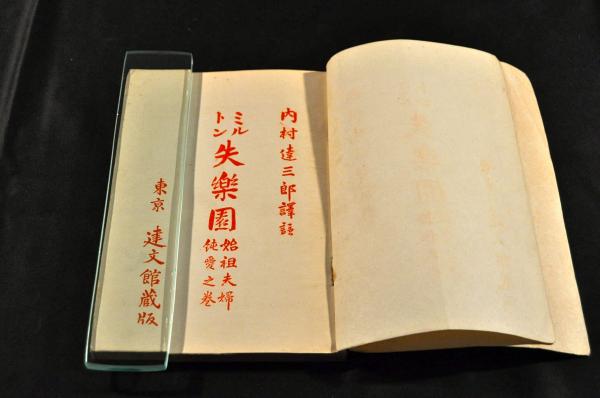 内村達三郎譯註
ミルトン
失樂園
始祖夫婦
純愛之巻
東京 達文館蔵版